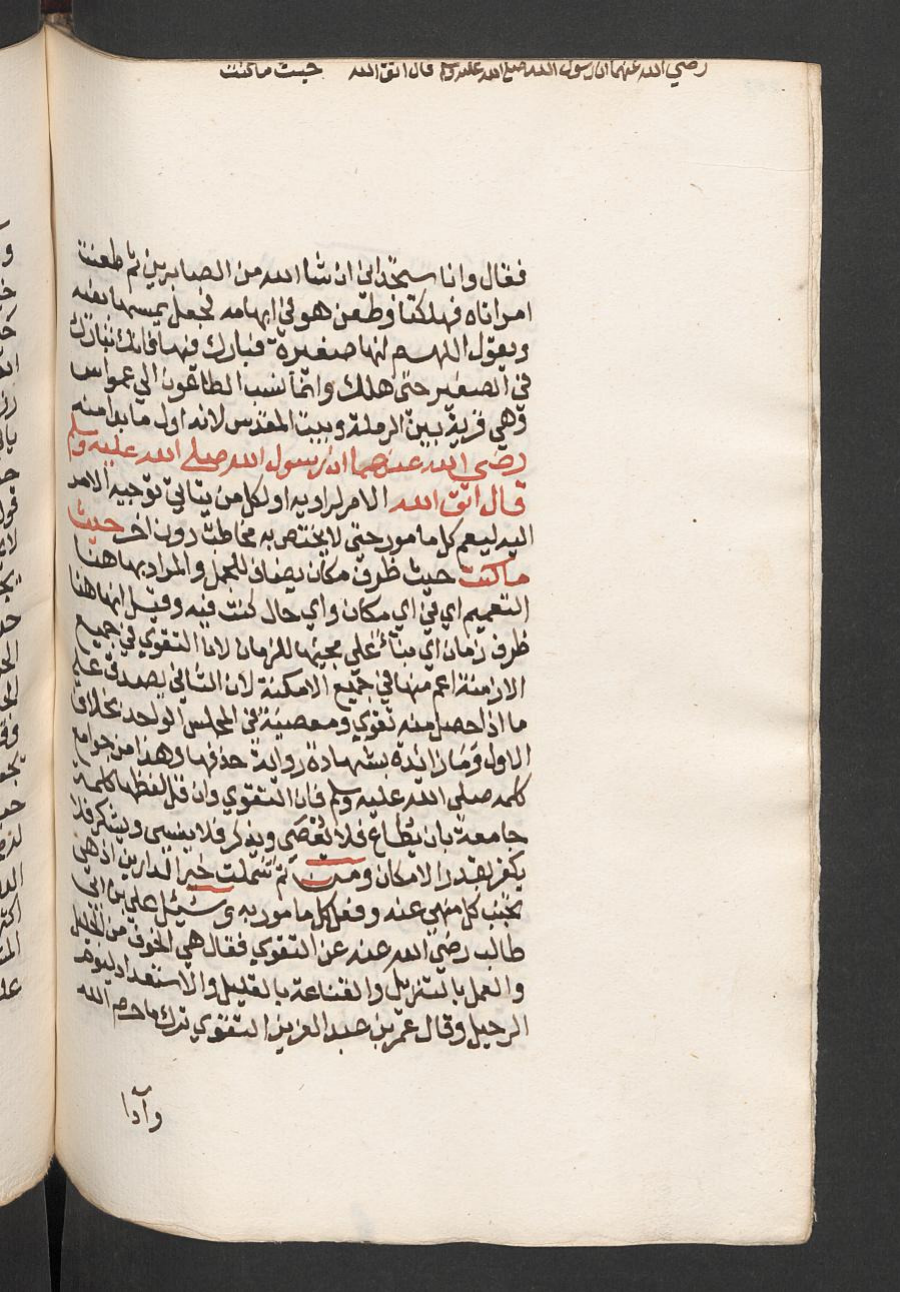 رضي الله عنهما ان رسول الله صلى الله عليه وسلم قال اتق الله حيث ما كنت
فقال وانا ستجدني ان شا الله من الصابرين ثم طعنت
امراتاه فهلكتا وطعن هو في ابهامه فجعل يمسها بفيه
ويقول اللهم انها صغيرة فبارك فيها فانك تبارك
في الصغير حتى هلك وانما نسب الطاعون الي عمواس
وهي قرية بين الرملة وبيت المقدس لانه اول ما بدا منه
رضي الله عنهما ان رسول الله صلى الله عليه وسلم
قال اتق الله الامر لراويه او لكل من يتاتي توجيه الامر
اليه ليعم كل مامور حتى لا يختص به مخاطب دون اخر حيث
ما كنت حيث ظرف مكان يضاف للجمل والمراد بها هنا
التعميم اي في اي مكان واي حال كنت فيه وقيل انها هنا
ظرف زمان اي بناء علي مجيئها للزمان لان التقوي في جميع
الازمنة اعم منها في جميع الامكنة لان الثاني يصدق علي
ما اذا حصل منه تقوي ومعصية في المجلس الواحد بخلاف
الاول وما زائدة بشهادة رواية حذفها وهذا من جوامع
كلمه صلي الله عليه وسلم فان التقوي وان قل لفظها كلمة
جامعة بان يطاع فلا يعصي ويذكر فلا ينسي ويشكر فلا
يكفر بقدر الامكان ومن ثم شملت خير الدارين اذ هي
تجنب كل منهي عنه وفعل كل مامور به وسئل علي بن ابي
طالب رضي الله عنه عن التقوي فقال هي الخوف من الجليل
والعمل بالتنزيل والقناعة بالقليل والاستعداد ليوم
الرحيل وقال عمر بن عبد العزيز التقوي ترك ما حرم الله
وآدا